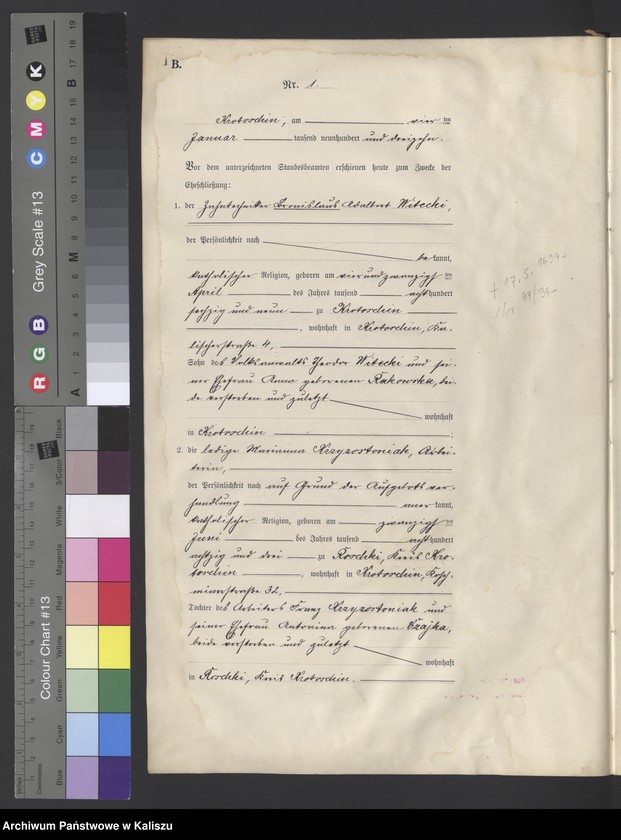 B.
Nr. 1.
Krotoschin, am vier ten
Januar tausend neunhundert und dreizehn.
Vor dem unterzeichneten Standesbeamten erschienen heute zum Zwecke der
Eheschließung:
1. der Zahntechniker Bronislaus Adalbert Witecki,
der Persönlichkeit nach
be kannt,
katholischer Religion, geboren am vierundzwanzigsten
April des Jahres tausend acht hundert
sechzig und neun zu Krotoschin
, wohnhaft in Krotoschin, Ka-
lischerstraße 4,
Sohn des Volksanwalts Theodor Witecki und sei-
ner Ehefrau Anna geborenen Rakowska, bei-
de verstorben und zuletzt
wohnhaft
in Krotoschin ;
2. die ledige Marianna Krzyzostoniak, Arbei-
terin,
der Persönlichkeit nach auf Grund der Aufgebotsver-
handlung
aner kannt,
katholischer Religion, geboren am zwanzigsten
Juni des Jahres tausend acht hundert
achtzig und drei zu Roschki, Kreis Kro-
toschin , wohnhaft in Krotoschin, Kosch-
minerstraße 32,
Tochter des Arbeiters Franz Krzyzostoniak und
seiner Ehefrau Antonina geborenen Szajka,
beide verstorben und zuletzt
wohnhaft
in Roschki, Kreis Krotoschin.
† 17.5.1939
99/39
Grey Scale #13
R G B C M Y K
A 1 2 3 4 5 6 M 7 8 9 10 11 12 13 14 15 B 17 18 19
Colour Chart #13
Blue Cyan Green Yellow Red Magenta White 3/Color Black
Centimetres
Archiwum Państwowe w Kaliszu